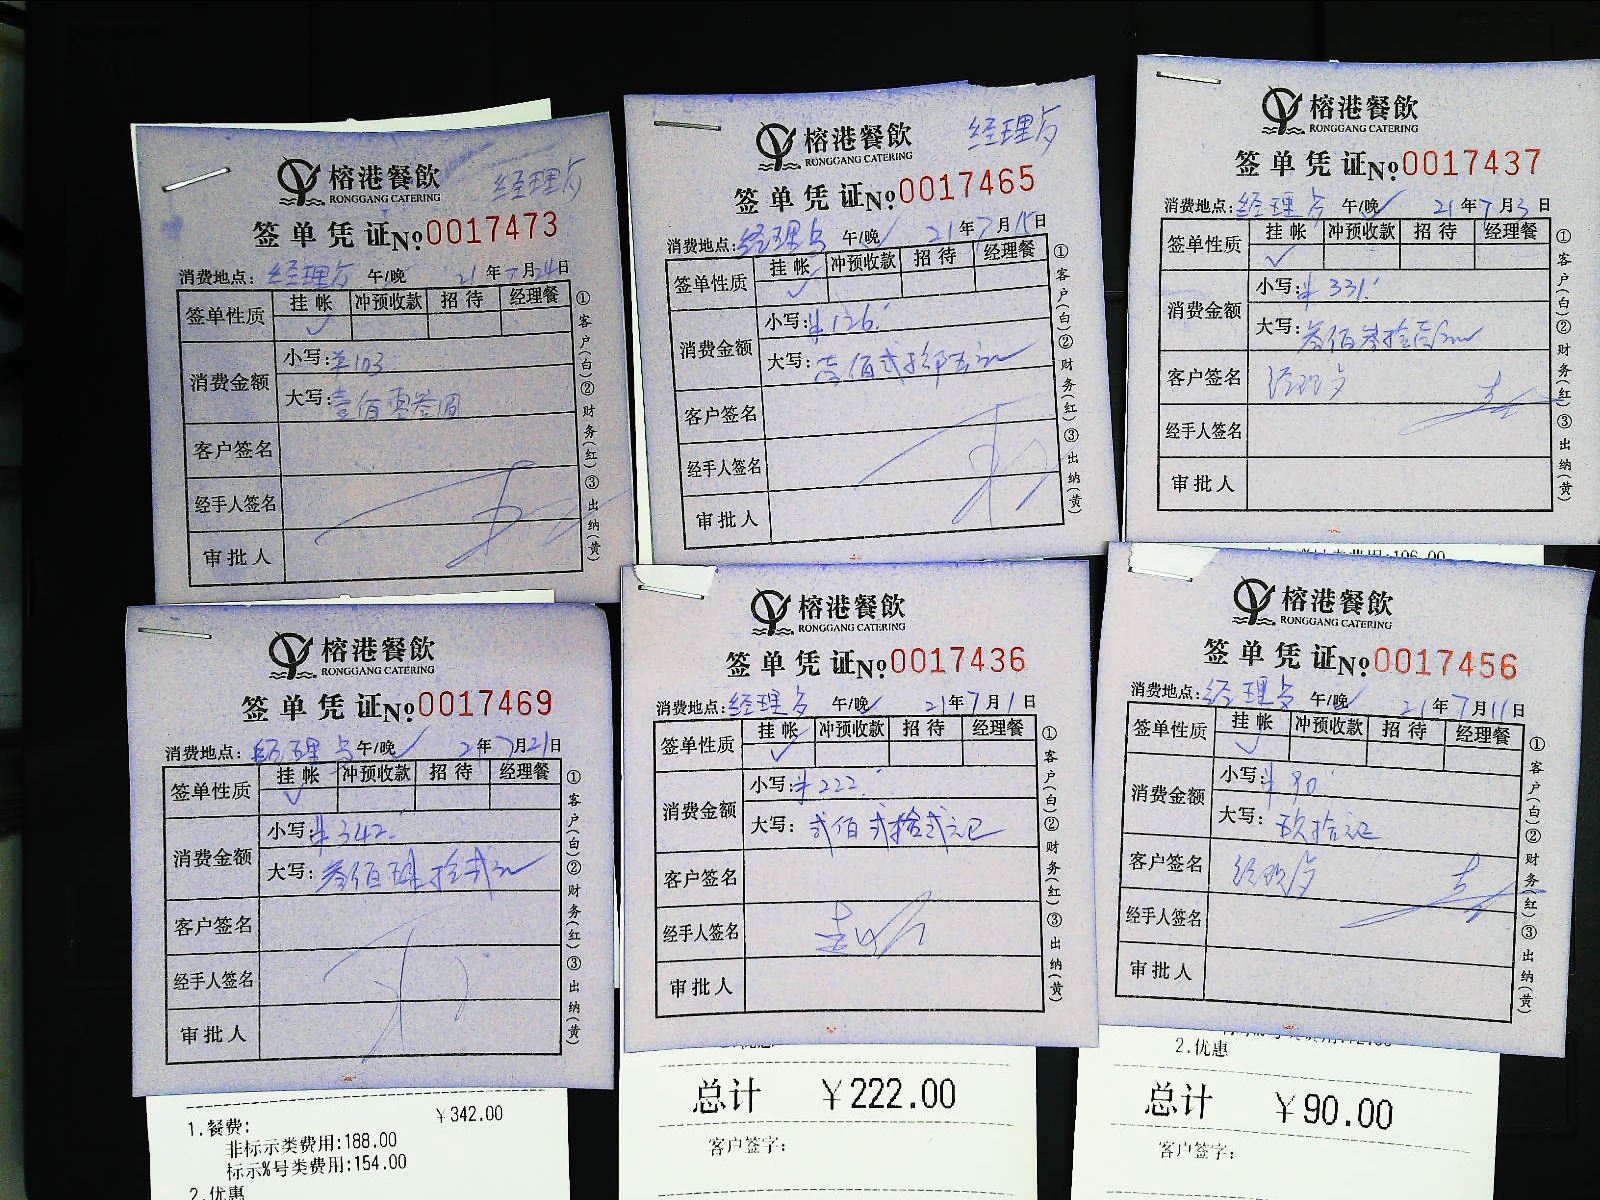 榕港餐飲
RONGGANG CATERING
经理房
签单凭证№0017473
消费地点:经理房 午/晚 21年7月24日
签单性质 挂帐 冲预收款 招待 经理餐
✓
消费金额 小写:¥103
大写:壹佰零叁圆
客户签名
经手人签名
审批人
①客户(白)②财务(红)③出纳(黄)
榕港餐飲
RONGGANG CATERING
经理房
签单凭证№0017465
消费地点:经理房 午/晚✓ 21年7月15日
签单性质 挂帐 冲预收款 招待 经理餐
✓
消费金额 小写:¥126.
大写:壹佰贰拾
客户签名
经手人签名
审批人
①客户(白)②财务(红)③出纳(黄)
榕港餐飲
RONGGANG CATERING
签单凭证№0017437
消费地点:经理房 午/晚✓ 21年7月3日
签单性质 挂帐 冲预收款 招待 经理餐
✓
消费金额 小写:¥331.
大写:叁佰叁拾壹元
客户签名 经理房
经手人签名
审批人
①客户(白)②财务(红)③出纳(黄)
榕港餐飲
RONGGANG CATERING
签单凭证№0017469
消费地点:经理房 午/晚✓ 2年7月21日
签单性质 挂帐 冲预收款 招待 经理餐
✓
消费金额 小写:¥342.
大写:叁佰肆拾贰元
客户签名
经手人签名
审批人
①客户(白)②财务(红)③出纳(黄)
1.餐费: ¥342.00
非标示类费用:188.00
标示%号类费用:154.00
2.优惠
榕港餐飲
RONGGANG CATERING
签单凭证№0017436
消费地点:经理房 午/晚✓ 21年7月1日
签单性质 挂帐 冲预收款 招待 经理餐
✓
消费金额 小写:¥222.
大写:贰佰贰拾贰元正
客户签名
经手人签名
审批人
①客户(白)②财务(红)③出纳(黄)
总计 ¥222.00
客户签字:
榕港餐飲
RONGGANG CATERING
签单凭证№0017456
消费地点:经理房 午/晚✓ 21年7月11日
签单性质 挂帐 冲预收款 招待 经理餐
✓
消费金额 小写:¥90.
大写:玖拾元正
客户签名 经理房
经手人签名
审批人
①客户(白)②财务(红)③出纳(黄)
2.优惠
总计 ¥90.00
客户签字: